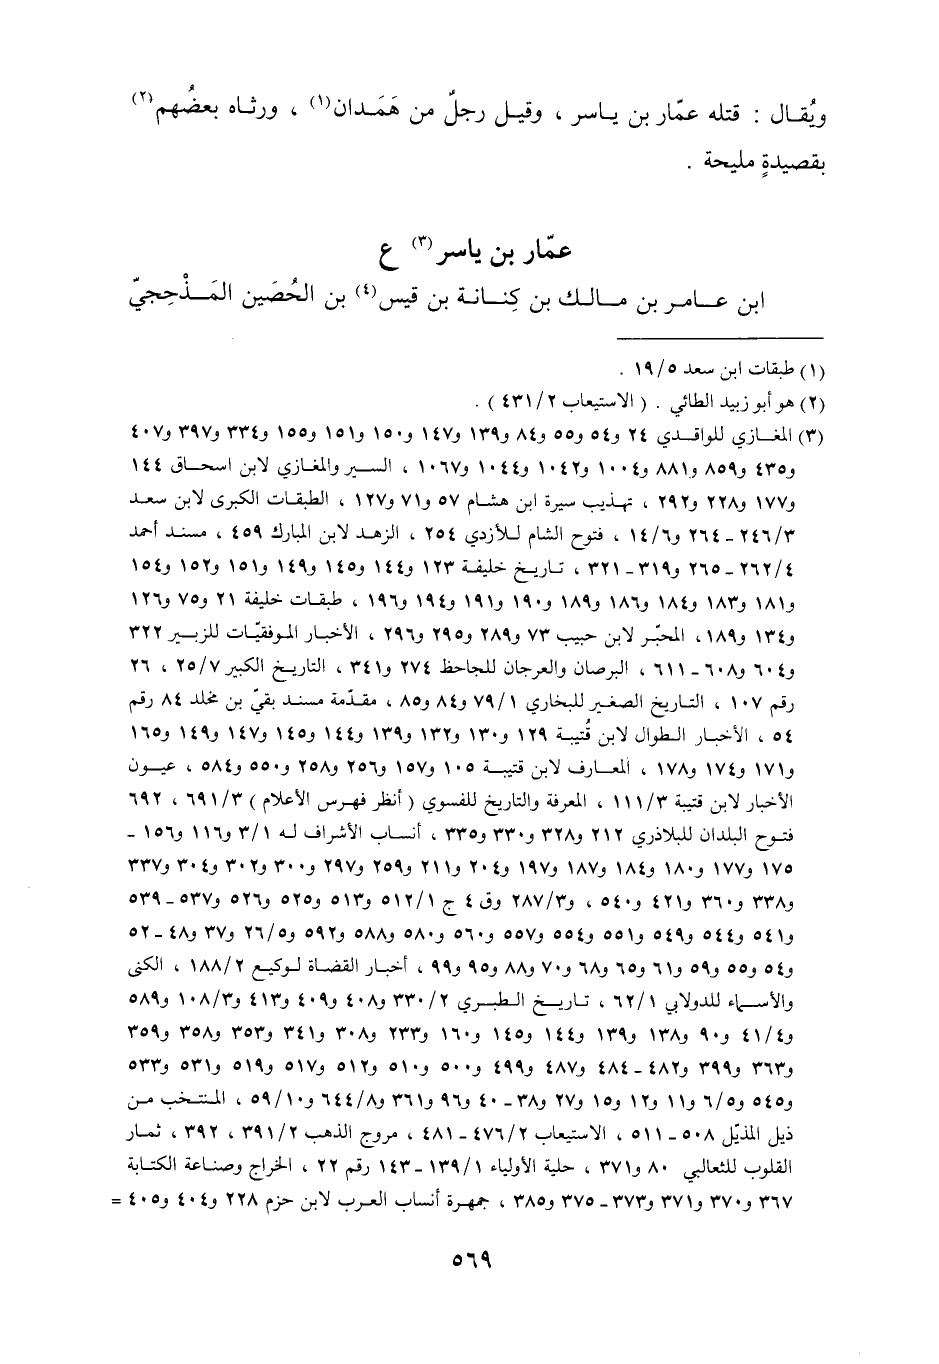 ويُقال : قتله عمّار بن ياسر ، وقيل رجلٌ من هَمَدان(١) ، ورثاه بعضُهم(٢)
بقصيدةٍ مليحة .
عمّار بن ياسر(٣) ع
ابن عامر بن مالك بن كِنانة بن قيس(٤) بن الحُصَين المَذْحِجيّ
(١) طبقات ابن سعد ١٩/٥ .
(٢) هو أبو زبيد الطائي . ( الاستيعاب ٤٣١/٢ ) .
(٣) المغازي للواقدي ٢٤ و٥٤ و٥٥ و٨٤ و١٣٩ و١٤٧ و١٥٠ و١٥١ و١٥٥ و٣٣٤ و٣٩٧ و٤٠٧
و٤٣٥ و٨٥٩ و٨٨١ و١٠٠٤ و١٠٤٢ و١٠٤٤ و١٠٦٧ ، السير والمغازي لابن اسحاق ١٤٤
و١٧٧ و٢٢٨ و٢٩٢ ، تهذيب سيرة ابن هشام ٥٧ و٧١ و١٢٧ ، الطبقات الكبرى لابن سعد
٢٤٦/٣ - ٢٦٤ و١٤/٦ ، فتوح الشام للأزدي ٢٥٤ ، الزهد لابن المبارك ٤٥٩ ، مسند أحمد
٢٦٢/٤ - ٢٦٥ و٣١٩ - ٣٢١ ، تاريخ خليفة ١٢٣ و١٤٤ و١٤٥ و١٤٩ و١٥١ و١٥٢ و١٥٤
و١٨١ و١٨٣ و١٨٤ و١٨٦ و١٨٩ و١٩٠ و١٩١ و١٩٤ و١٩٦ ، طبقات خليفة ٢١ و٧٥ و١٢٦
و١٣٤ و١٨٩، المحبّر لابن حبيب ٧٣ و٢٨٩ و٢٩٥ و٢٩٦ ، الأخبار الموفقيّات للزبير ٣٢٢
و٦٠٤ و٦٠٨ - ٦١١ ، البرصان والعرجان للجاحظ ٢٧٤ و٣٤١ ، التاريخ الكبير ٢٥/٧ ، ٢٦
رقم ١٠٧ ، التاريخ الصغير للبخاري ٧٩/١ و٨٤ و٨٥ ، مقدّمة مسند بقيّ بن مخلد ٨٤ رقم
٥٤ ، الأخبار الطوال لابن قُتيبة ١٢٩ و١٣٠ و١٣٢ و١٣٩ و١٤٤ و١٤٥ و١٤٧ و١٤٩ و١٦٥
و١٧١ و١٧٤ و١٧٨ ، المعارف لابن قتيبة ١٠٥ و١٥٧ و٢٥٦ و٢٥٨ و٥٥٠ و٥٨٤ ، عيون
الأخبار لابن قتيبة ١١١/٣ ، المعرفة والتاريخ للفسوي ( أنظر فهرس الأعلام ) ٦٩١/٣ ، ٦٩٢
فتوح البلدان للبلاذري ٢١٢ و٣٢٨ و٣٣٠ و٣٣٥ ، أنساب الأشراف له ٣/١ و١١٦ و١٥٦ -
١٧٥ و١٧٧ و١٨٠ و١٨٤ و١٨٧ و١٩٧ و٢٠٤ و٢١١ و٢٥٩ و٢٩٧ و٣٠٠ و٣٠٢ و٣٠٤ و٣٣٧
و٣٣٨ و٣٦٠ و٤٢١ و٥٤٠ ، و٢٨٧/٣ وق ٤ ج ٥١٢/١ و٥١٣ و٥٢٥ و٥٢٦ و٥٣٧ - ٥٣٩
و٥٤١ و٥٤٤ و٥٤٩ و٥٥١ و٥٥٤ و٥٥٧ و٥٦٠ و٥٨٠ و٥٨٨ و٥٩٢ و٢٦/٥ و٣٧ و٤٨ - ٥٢
و٥٤ و٥٥ و٥٩ و٦١ و٦٥ و٦٨ و٧٠ و٨٨ و٩٥ و٩٩ ، أخبار القضاة لوكيع ١٨٨/٢ ، الكنى
والأسماء للدولابي ٦٢/١ ، تاريخ الطبري ٣٣٠/٢ و٤٠٨ و٤٠٩ و٤١٣ و١٠٨/٣ و٥٨٩
و٤١/٤ و٩٠ و١٣٨ و١٣٩ و١٤٤ و١٤٥ و١٦٠ و٢٣٣ و٣٠٨ و٣٤١ و٣٥٣ و٣٥٨ و٣٥٩
و٣٦٣ و٣٩٩ و٤٨٢ - ٤٨٤ و٤٨٧ و٤٩٩ و٥٠٠ و٥١٠ و٥١٢ و٥١٧ و٥١٩ و٥٣١ و٥٣٣
و٥٤٥ و٦/٥ و١١ و١٢ و١٥ و٢٧ و٣٨ - ٤٠ و٩٦ و٣٦١ و٦٤٤/٨ و٥٩/١٠ ، المنتخب من
ذيل المذيّل ٥٠٨ - ٥١١ ، الاستيعاب ٤٧٦/٢ - ٤٨١ ، مروج الذهب ٣٩١/٢ ، ٣٩٢ ، ثمار
القلوب للثعالبي ٨٠ و٣٧١ ، حلية الأولياء ١٣٩/١ - ١٤٣ رقم ٢٢ ، الخراج وصناعة الكتابة
٣٦٧ و٣٧٠ و٣٧١ و٣٧٣ - ٣٧٥ و٣٨٥ ، جمهرة أنساب العرب لابن حزم ٢٢٨ و٤٠٤ و٤٠٥ =
٥٦٩